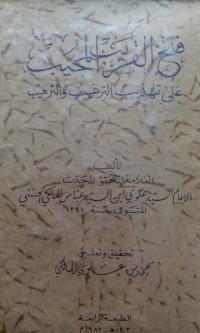 فتح القريب المجيب
على تهذيب الترغيب والترهيب
تأليف
العلامة المحقق المحدث
الإمام السيد علوي ابن السيد عباس المالكي الحسني
المتوفى سنة ١٣٩١
تحقيق وتعليق
محمد بن علوي المالكي
الطبعة الرابعة
١٤٠٣ هـ ١٩٨٢ م